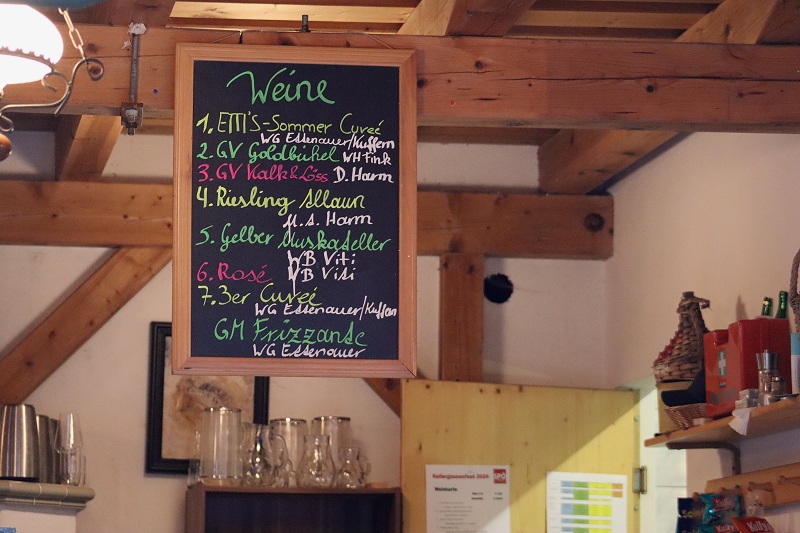 Weine
1. ETTI'S-Sommer Cuveé
WG Essenauer/Kuffern
2. GV Goldbühel WH Fink
3. GV Kalk & Löss D. Harm
4. Riesling Allaun
M. S. Harm
5. Gelber Muskateller
WB Viti
6. Rosé WB Viti
7. 3er Cuveé
WG Essenauer/Kuffern
GM Frizzante
WG Essenauer
Kellergassenfest 2024
Weinkarte:
Kelly's